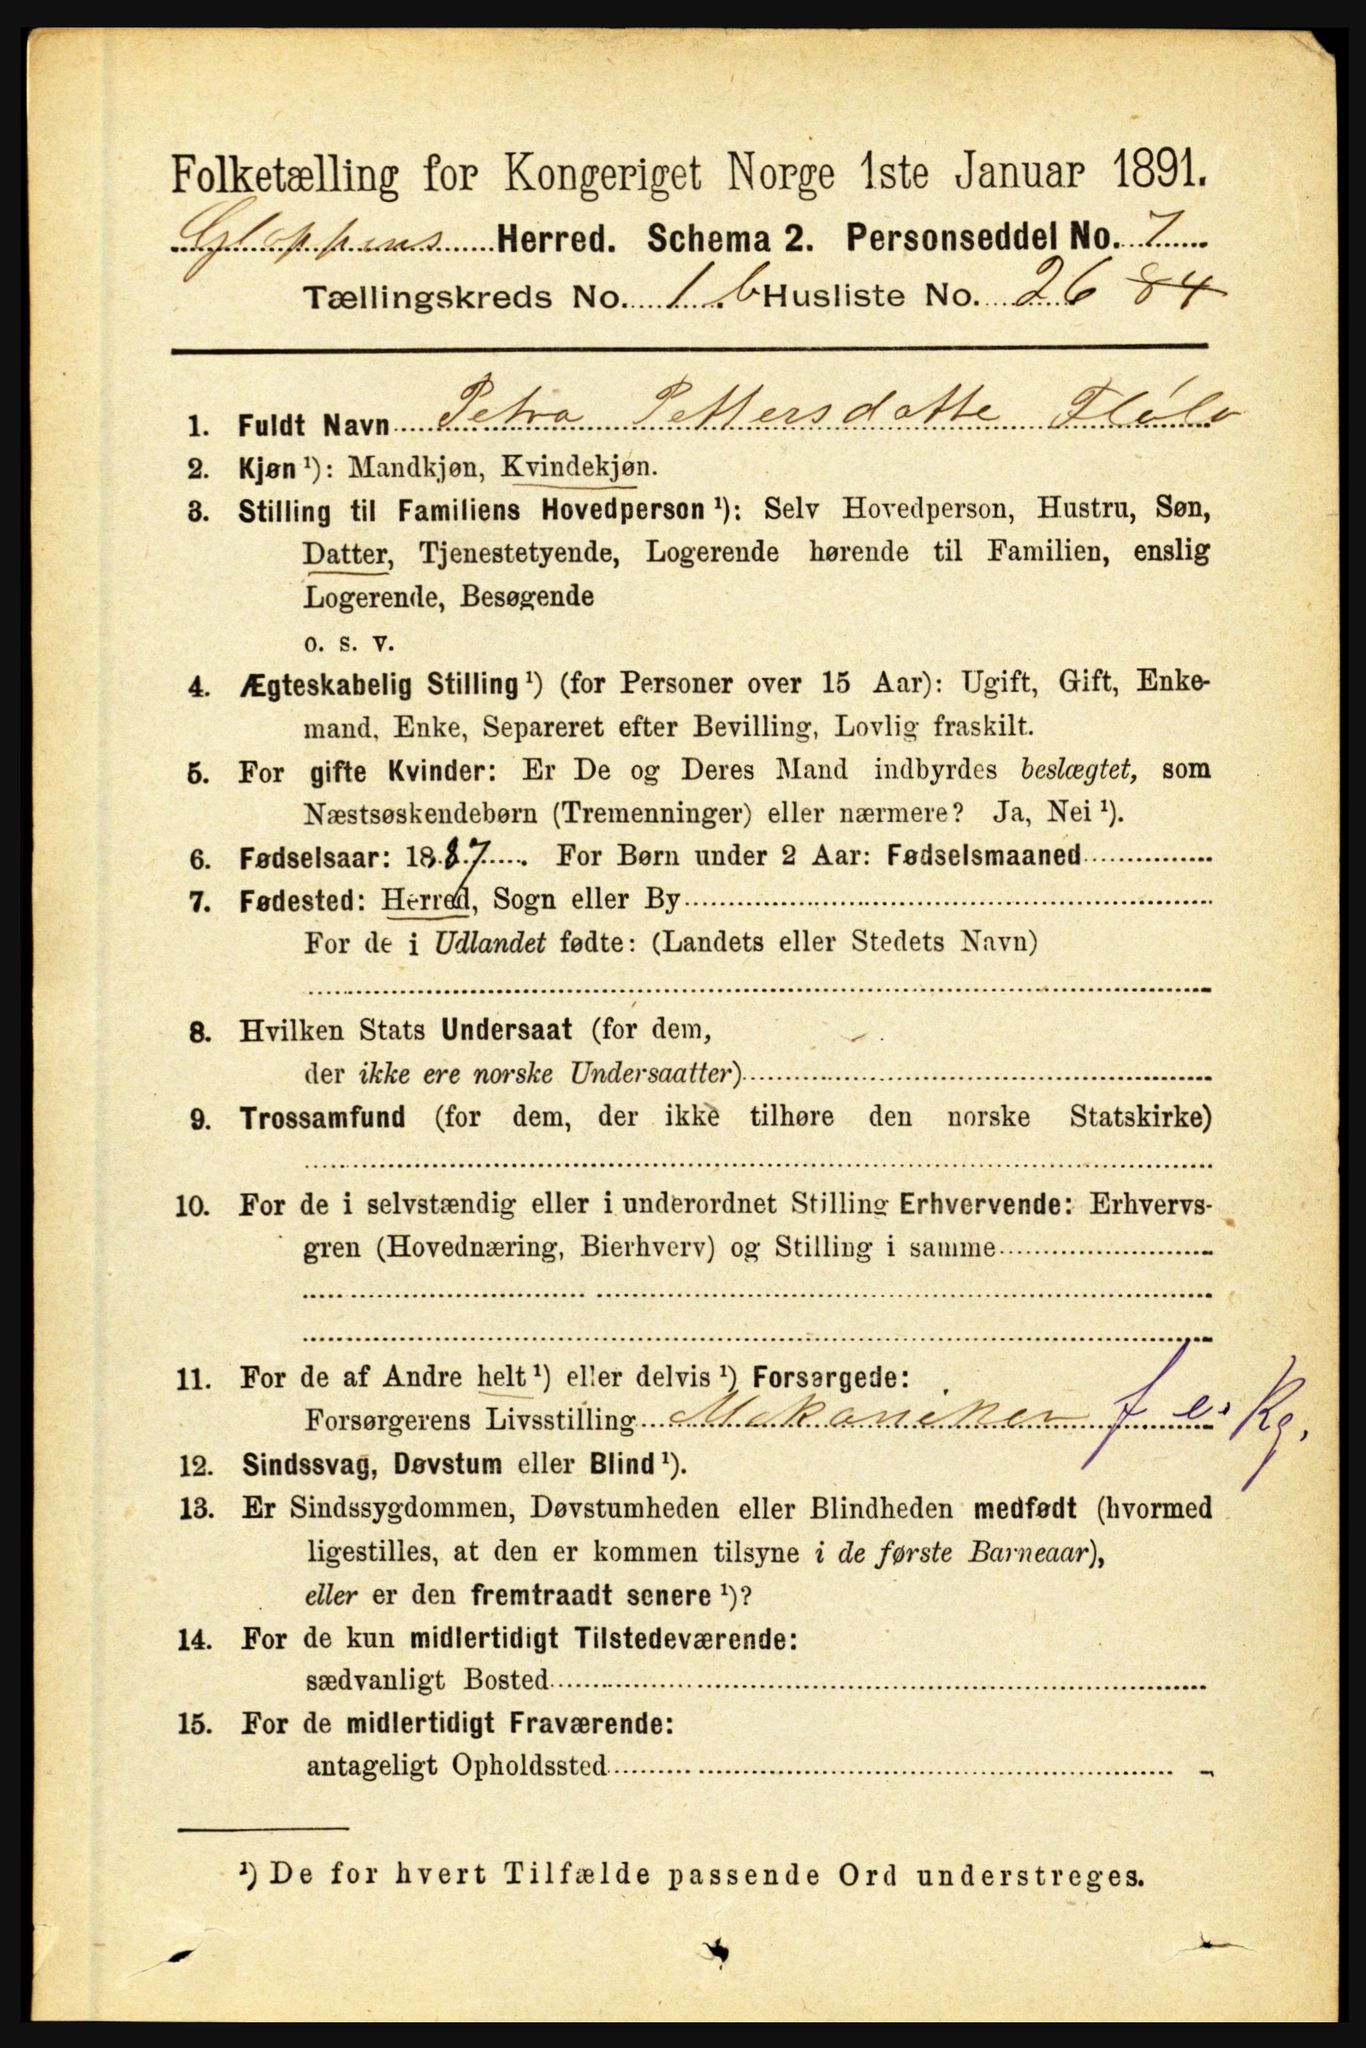 Folketælling for Kongeriget Norge 1ste Januar 1891.
Gloppens Herred. Schema 2. Personseddel No. 7
Tællingskreds No. 1 b Husliste No. 26 84
1. Fuldt Navn Petra Pettersdatte Flølo
2. Kjøn ¹): Mandkjøn, Kvindekjøn.
3. Stilling til Familiens Hovedperson ¹): Selv Hovedperson, Hustru, Søn,
Datter, Tjenestetyende, Logerende hørende til Familien, enslig
Logerende, Besøgende
o. s. v.
4. Ægteskabelig Stilling ¹) (for Personer over 15 Aar): Ugift, Gift, Enke-
mand, Enke, Separeret efter Bevilling, Lovlig fraskilt.
5. For gifte Kvinder: Er De og Deres Mand indbyrdes beslægtet, som
Næstsøskendebørn (Tremenninger) eller nærmere? Ja, Nei ¹).
6. Fødselsaar: 1887. For Børn under 2 Aar: Fødselsmaaned
7. Fødested: Herred, Sogn eller By
For de i Udlandet fødte: (Landets eller Stedets Navn)
8. Hvilken Stats Undersaat (for dem,
der ikke ere norske Undersaatter)
9. Trossamfund (for dem, der ikke tilhøre den norske Statskirke)
10. For de i selvstændig eller i underordnet Stilling Erhvervende: Erhvervs-
gren (Hovednæring, Bierhverv) og Stilling i samme
11. For de af Andre helt ¹) eller delvis ¹) Forsørgede:
Forsørgerens Livsstilling Mekaniker f e. Kg.
12. Sindssvag, Døvstum eller Blind ¹).
13. Er Sindssygdommen, Døvstumheden eller Blindheden medfødt (hvormed
ligestilles, at den er kommen tilsyne i de første Barneaar),
eller er den fremtraadt senere ¹)?
14. For de kun midlertidigt Tilstedeværende:
sædvanligt Bosted
15. For de midlertidigt Fraværende:
antageligt Opholdssted
¹) De for hvert Tilfælde passende Ord understreges.